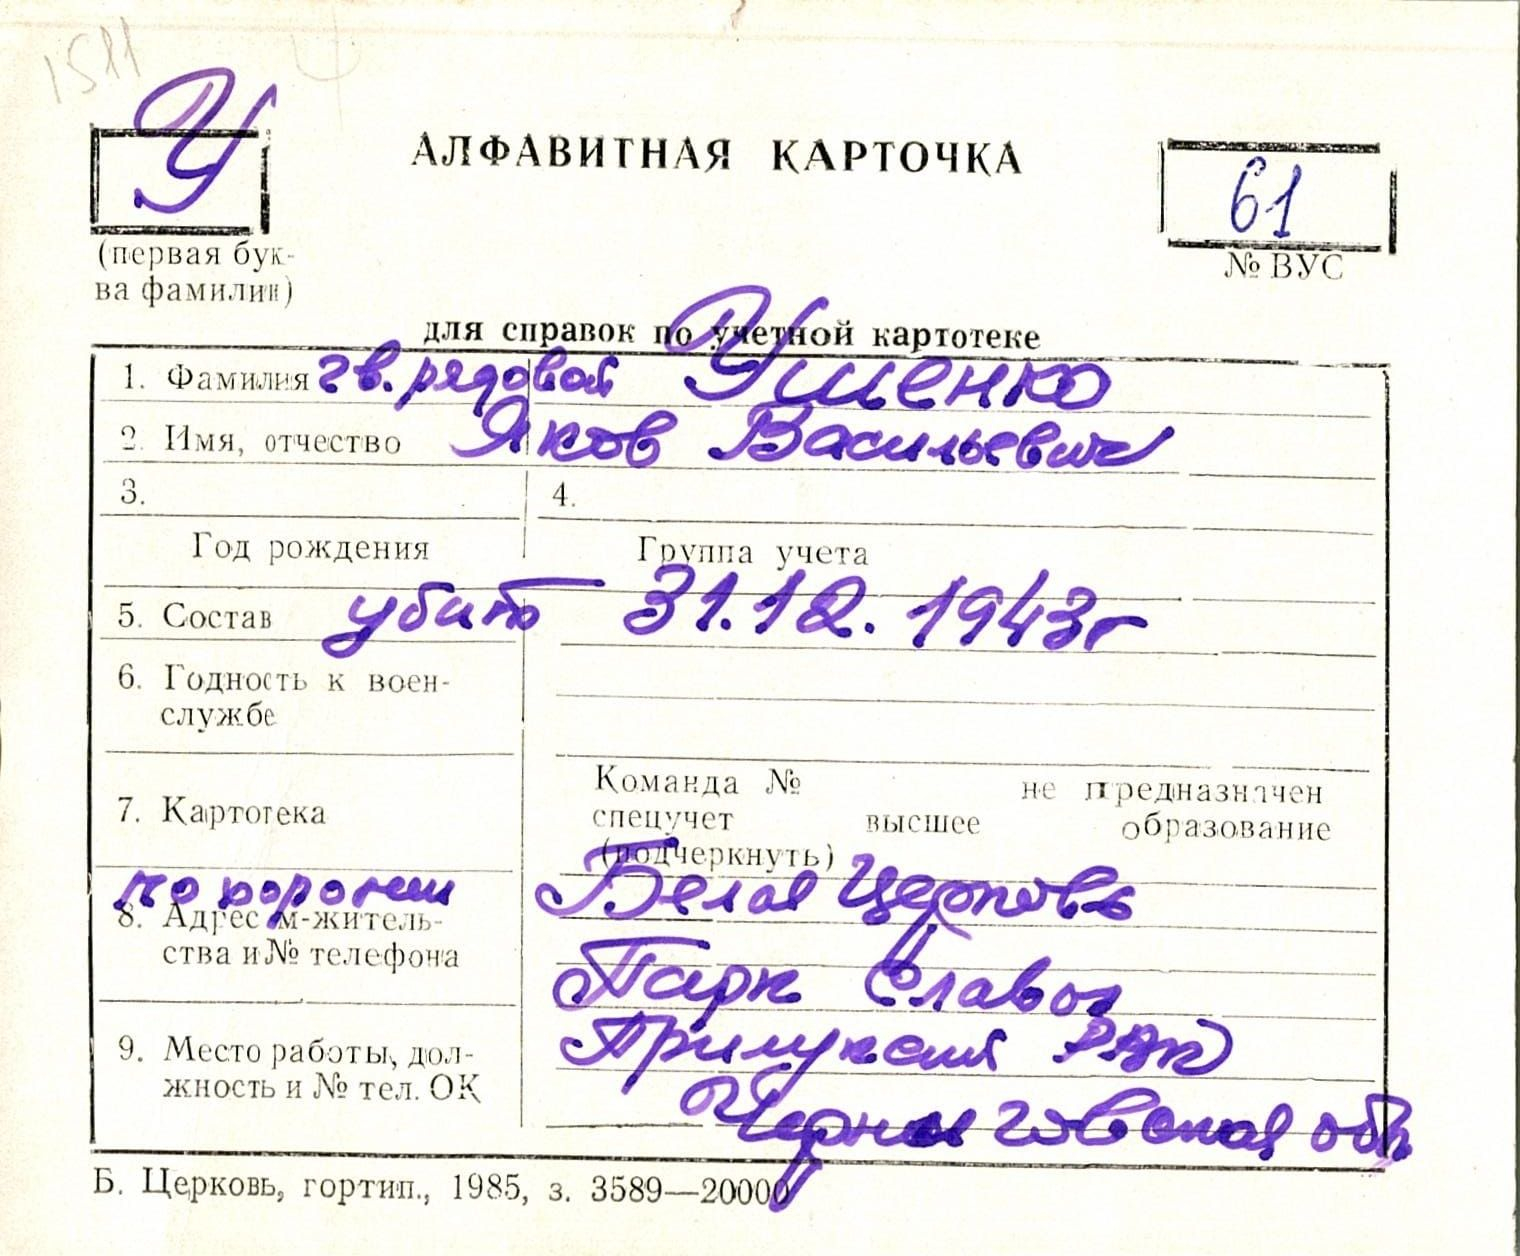 1511
У
АЛФАВИТНАЯ КАРТОЧКА
61
(первая бук-
ва фамилии)
№ ВУС
для справок по учетной картотеке
1. Фамилия гв. рядовой Ушенко
2. Имя, отчество Яков Васильевич
3. 4.
Год рождения Группа учета
5. Состав убит 31.12.1943г
6. Годность к воен-
службе
7. Картотека
Команда № не предназначен
спецучет высшее образование
(подчеркнуть)
похоронен Белая Церковь
8. Адрес м-житель-
ства и № телефона
Парк Славы
9. Место работы, дол-
жность и № тел. ОК
Прилукский РВК
Черниговская обл
Б. Церковь, гортип., 1985, з. 3589—20000